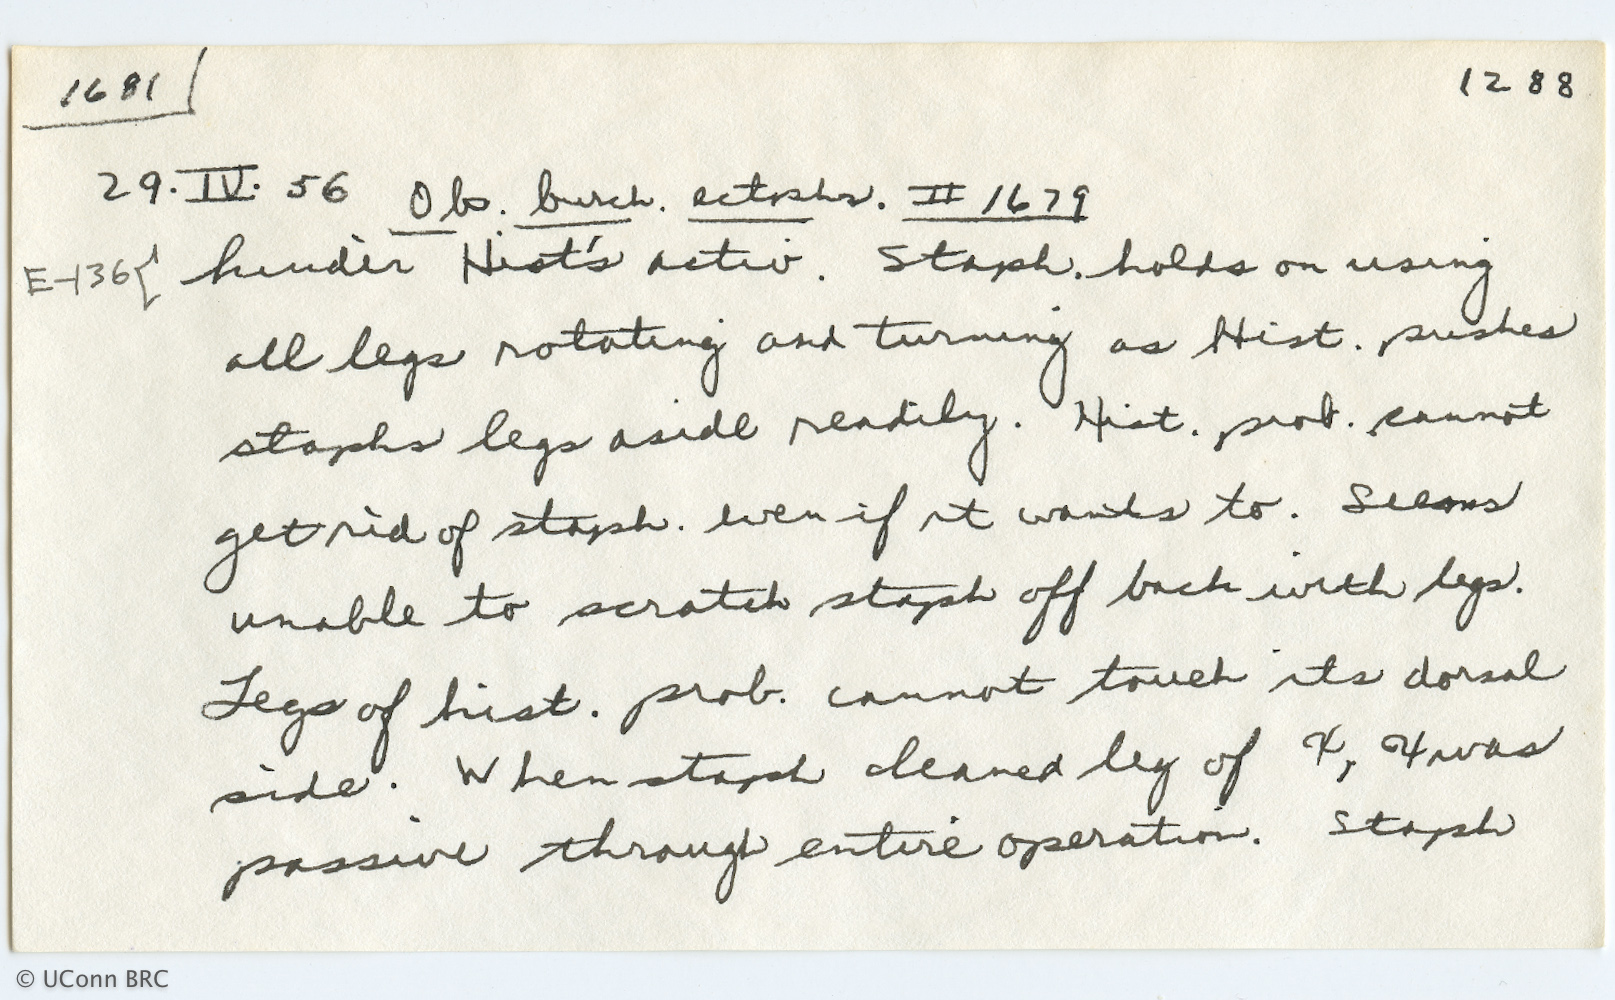 1681
1288
29.IV.56 Obs. burch. ectophs. II 1679
E-136{ hinder Hist's activ. Staph. holds on using
all legs rotating and turning as Hist. pushes
staphs legs aside readily. Hist. prob. cannot
get rid of staph. even if it wants to. Seems
unable to scratch staph off back with legs.
Legs of hist. prob. cannot touch its dorsal
side. When staph cleaned leg of was
passive through entire operation. Staph
© UConn BRC